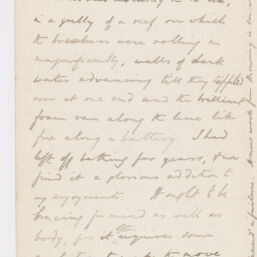 in a gully of a reef on which
the breakers were rolling in
magnificently, walls of dark
water advancing till they toppled
over at one end and the brilliant
foam ran along the line like
fire along a battery. I had
left off bathing for years, &
find it a glorious addition to
my enjoyments. It ought to be
bracing for mind as well as
body, for it requires some
to the move